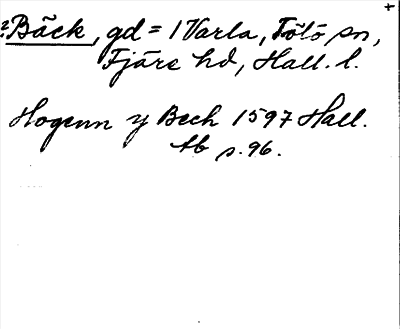 +
? Bäck, gd = 1 Varla, Tölö sn,
Fjäre hd, Hall. l.
Hogenn y Bech 1597 Hall.
tb s. 96.